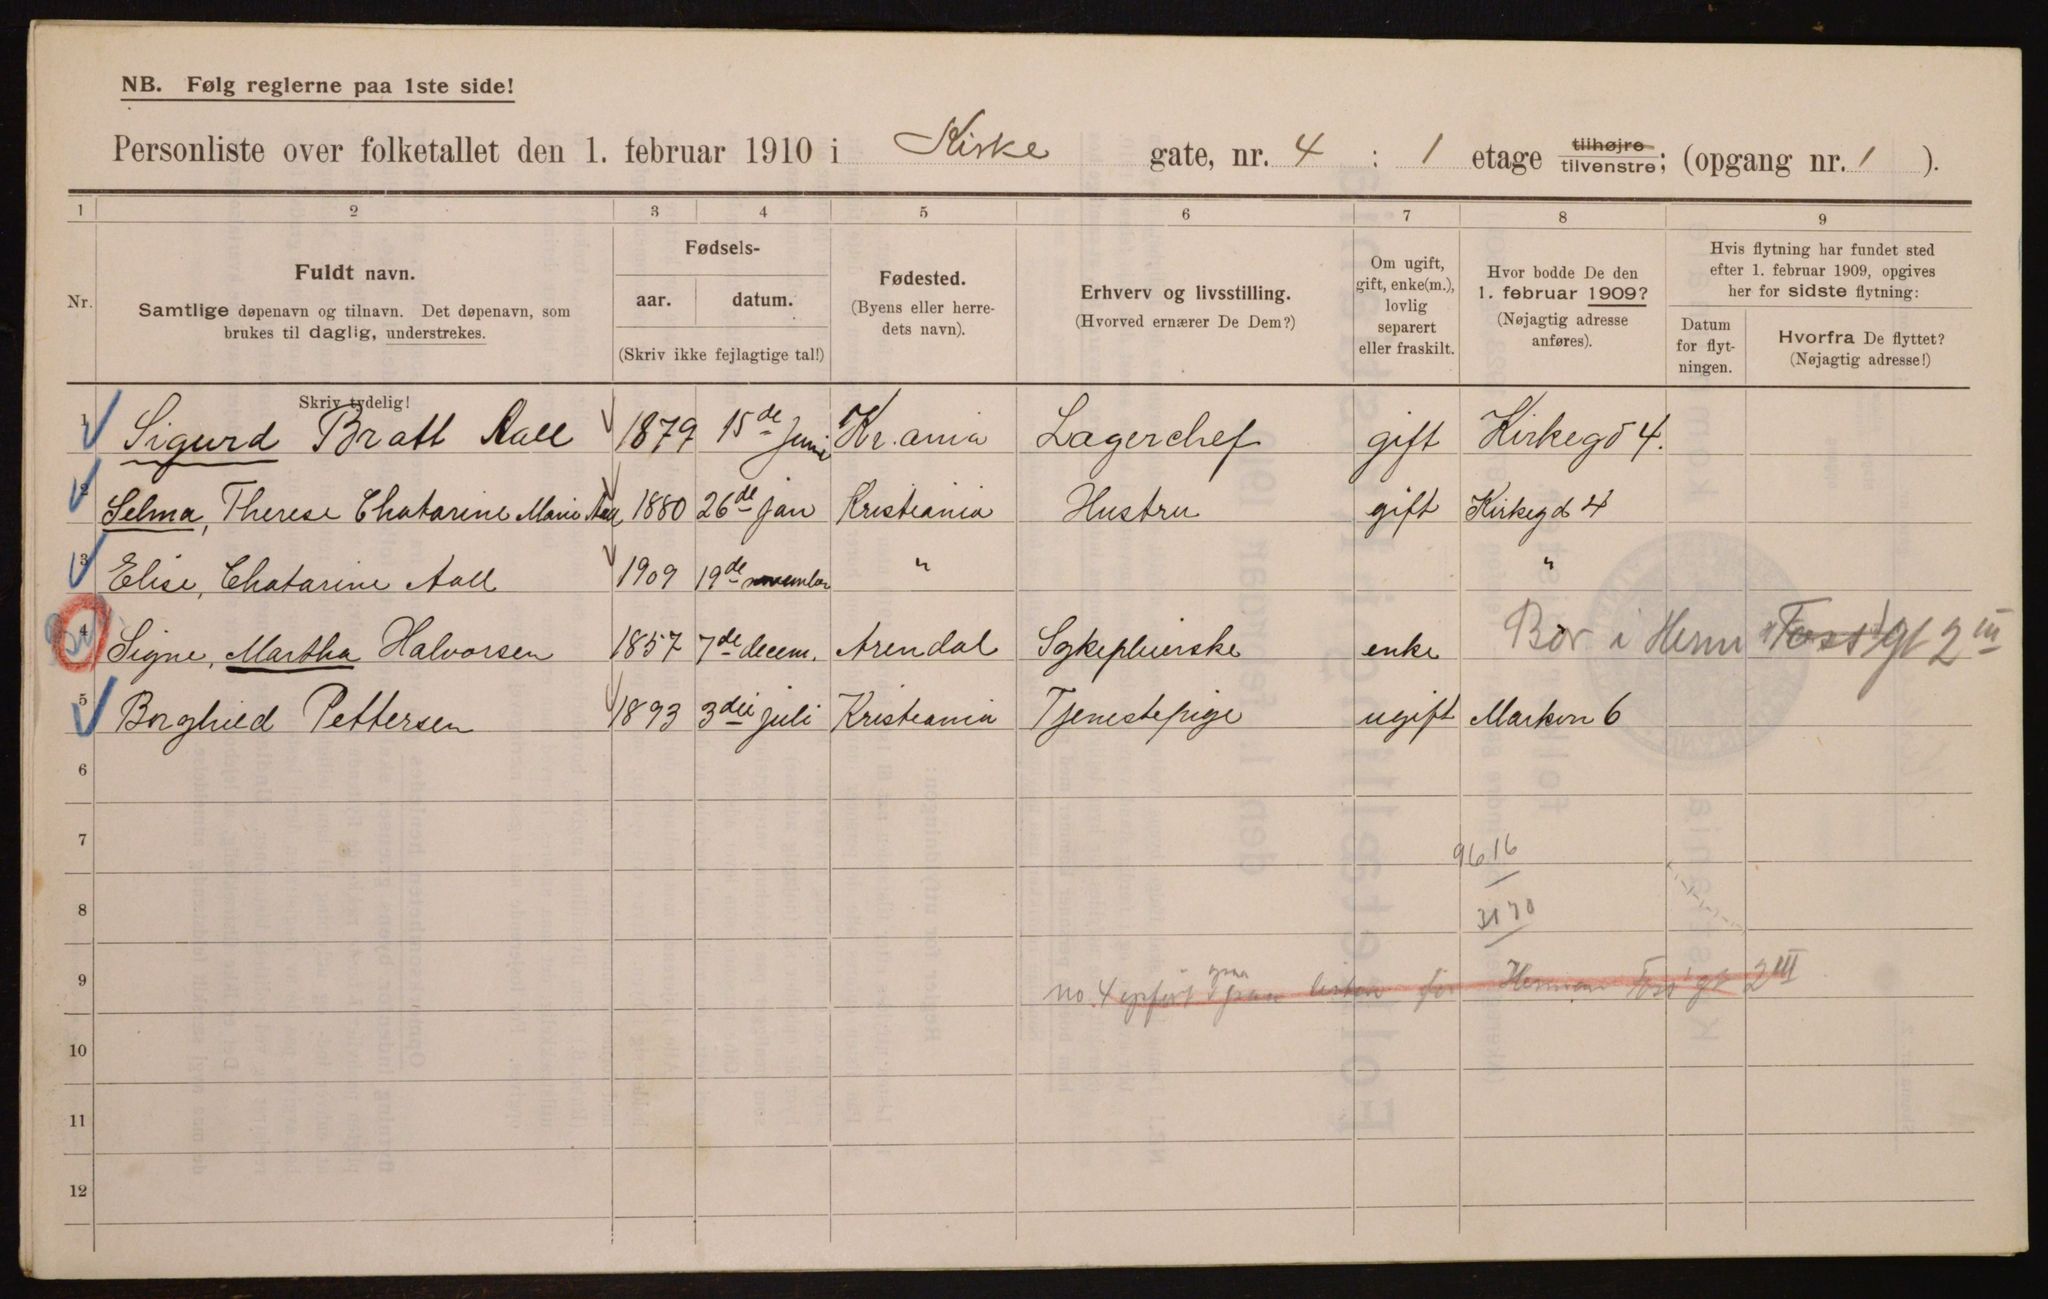 NB. Følg reglerne paa 1ste side!
Personliste over folketallet den 1. februar 1910 i Kirke gate, nr. 4 : 1 etage tilhøjre tilvenstre; (opgang nr. 1 ).
1 2 3 4 5 6 7 8 9
Nr.
Fuldt navn.
Samtlige døpenavn og tilnavn. Det døpenavn, som
brukes til daglig, understrekes.
Skriv tydelig!
Fødsels-
aar. datum.
(Skriv ikke fejlagtige tal!)
Fødested.
(Byens eller herre-
dets navn).
Erhverv og livsstilling.
(Hvorved ernærer De Dem?)
Om ugift,
gift, enke(m.),
lovlig
separert
eller fraskilt.
Hvor bodde De den
1. februar 1909?
(Nøjagtig adresse
anføres).
Hvis flytning har fundet sted
efter 1. februar 1909, opgives
her for sidste flytning:
Datum
for flyt-
ningen.
Hvorfra De flyttet?
(Nøjagtig adresse!)
1 Sigurd Bratt Aall 1879 15de Juni Kr.ania Lagerchef gift Kirkegd 4.
2 Selma, Therese Chatarine Marie Aall 1880 26de jan Kristiania Hustru gift Kirkegd 4
3 Elise, Chatarine Aall 1909 19de november " "
4 Signe, Martha Halvorsen 1857 7de decem. Arendal Sykepleierske enke Bor i Herm Foss' gt 2 III
5 Borghild Pettersen 1893 3die juli Kristiania Tjenestepige ugift Markvn 6
6
7
9616
8
3170
9 no. 4 opført paa listen for Hermann Foss' gt 2 III
10
11
12